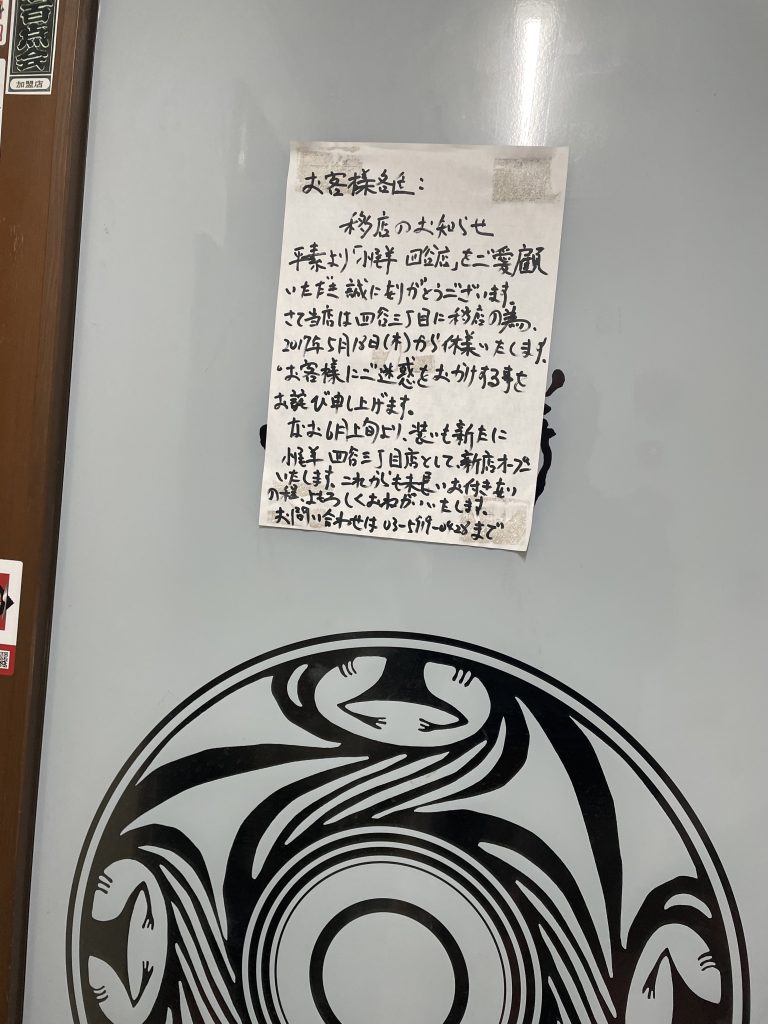 百点会
加盟店
お客様各位:
移店のお知らせ
平素より「小尾羊 四谷店」をご愛顧
いただき誠にありがとうございます。
さて当店は四谷三丁目に移店の為、
2017年5月18日(木)から休業いたします。
お客様にご迷惑をおかけする事を
お詫び申し上げます。
なお6月上旬より、装いも新たに
小尾羊 四谷三丁目店として、新店オープン
いたします。これからも末長いお付き合い
の程、よろしくおねがいいたします。
お問い合わせは 03-5919-0428まで